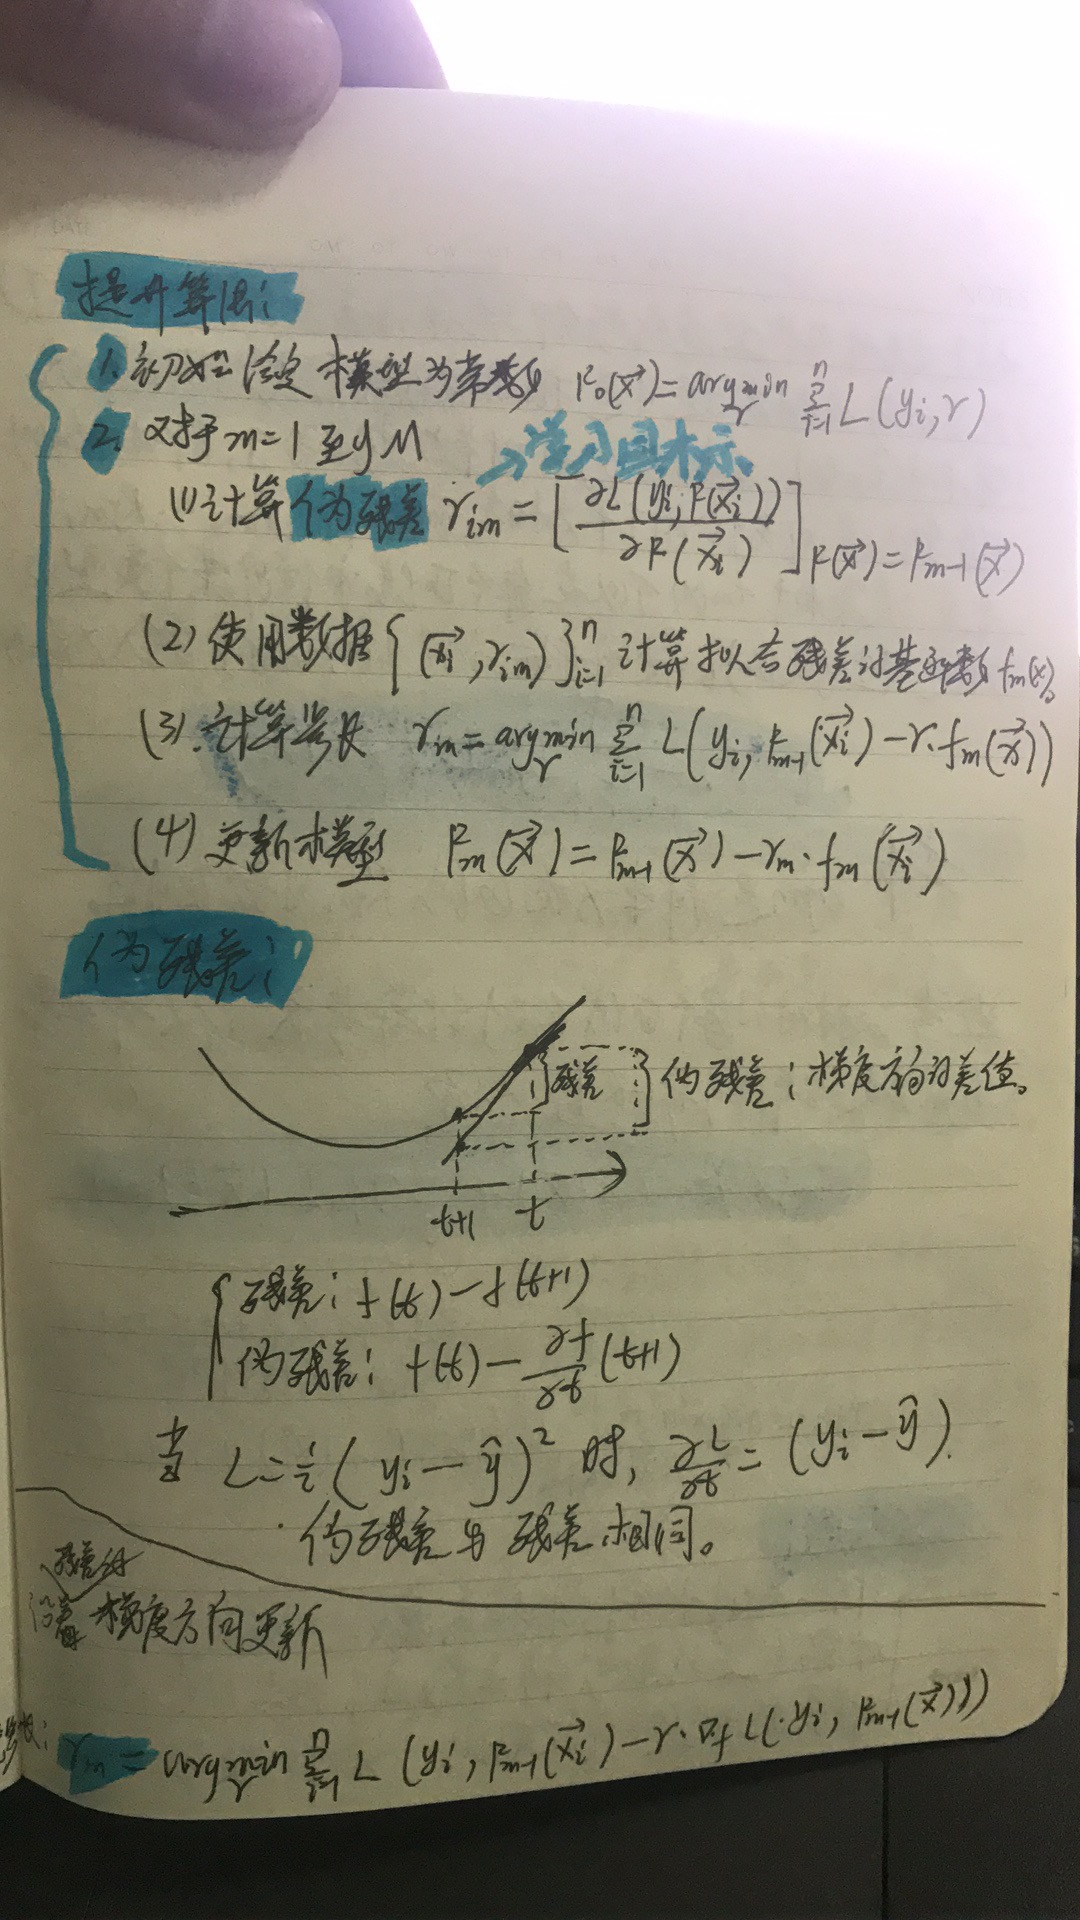 提升算法:
1. 初始给定模型为常数 F₀(x⃗)=argmin_γ Σ_{i=1}^n L(yi,γ)
2. 对于m=1至M
→学习目标
(1)计算伪残差 γim = [∂L(yi,F(x⃗i))/∂F(x⃗i)] F(x⃗)=Fm-1(x⃗)
(2)使用数据{(x⃗i,γim)}_{i=1}^n 计算拟合残差的基函数fm(x)。
(3).计算步长 γm=argmin_γ Σ_{i=1}^n L(yi,Fm-1(x⃗i)-γ·fm(x⃗))
(4)更新模型 Fm(x⃗)=Fm-1(x⃗)-γm·fm(x⃗i)
伪残差:
残差 伪残差:梯度方向的差值。
t+1 t
残差:f(t)-f(t+1)
伪残差:f(t)-∂f/∂t(t+1)
当 L=½(yi-ŷ)² 时, ∂L/∂t=(yi-ŷ).
伪残差与残差相同。
沿着梯度方向更新
γm=argmin_γ Σ_{i=1}^n L(yi,Fm-1(x⃗i)-γ·∇f L(yi,Fm-1(x⃗)))